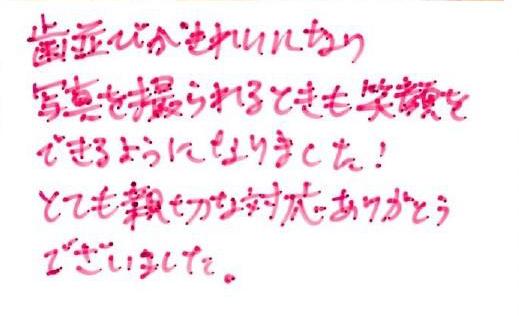 歯並びがきれいになり
写真を撮られるときも笑顔を
できるようになりました！
とても親切な対応ありがとう
ございました。